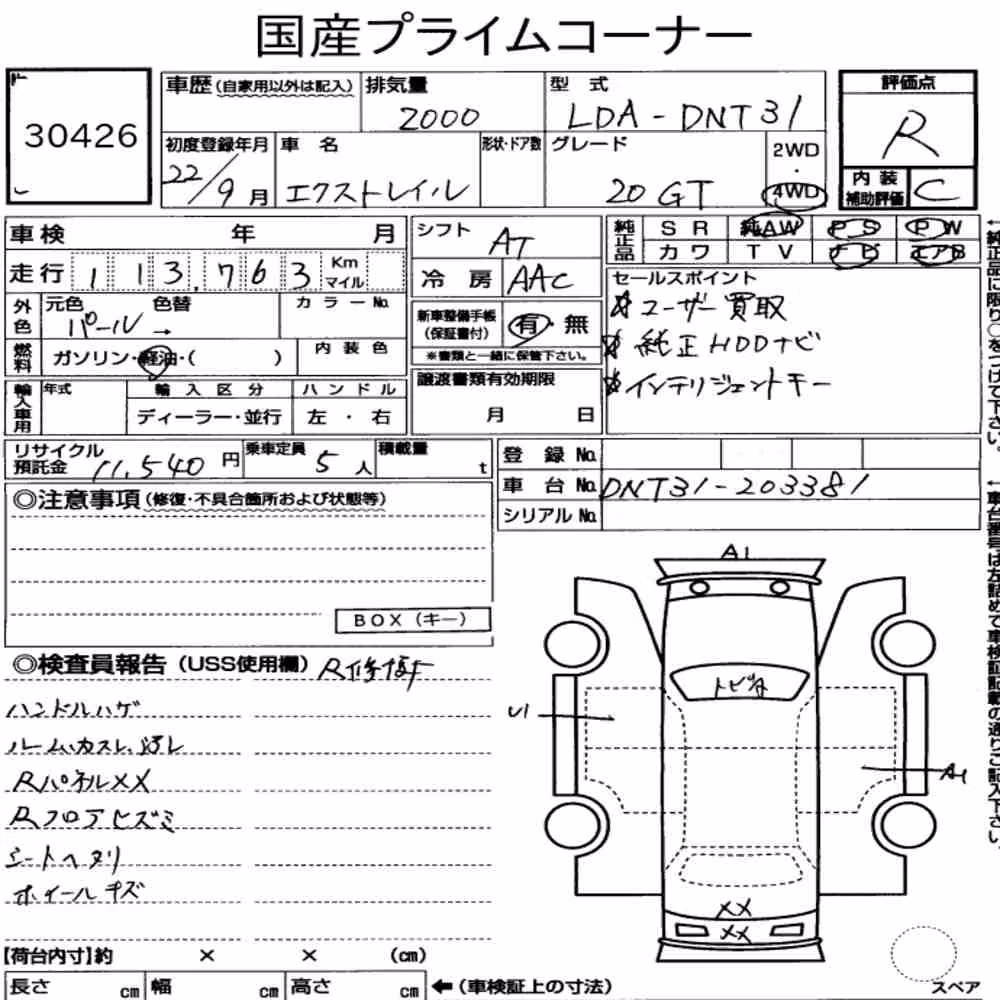 国産プライムコーナー
30426
車歴(自家用以外は記入) 排気量 2000 型式 LDA-DNT31
初度登録年月 22/9月 車名 エクストレイル 形状・ドア数 グレード 20GT 2WD・4WD
評価点 R
内装補助評価 C
車検 年 月
走行 113,763 Km マイル
外色 元色 パール 色替 → カラーNo.
燃料 ガソリン・軽油・( ) 内装色
輸入車用 年式 輸入区分 ディーラー・並行 ハンドル 左・右
シフト AT
冷房 AAC
新車整備手帳(保証書付) 有・無
※書類と一緒に保管下さい。
譲渡書類有効期限
月 日
純正品 SR 純AW PS PW
カワ TV ナビ エアB
セールスポイント
☆ユーザー買取
☆純正HDDナビ
☆インテリジェントキー
←純正品に限り○をつけて下さい。
リサイクル預託金 11,540円 乗車定員 5人 積載量 t
登録No.
車台No. DNT31-203381
シリアルNo.
←車台番号は左詰めで車検証記載の通りご記入下さい。
◎注意事項(修復・不具合箇所および状態等)
BOX(キー)
◎検査員報告(USS使用欄) R修復歴
ハンドルハゲ
ルームカスレ、汚レ
RパネルXX
Rフロアヒズミ
シートヘタリ
ホイールキズ
A1
トビ合
U1
A1
XX
XX
スペア
【荷台内寸】約 × × (cm)
長さ cm 幅 cm 高さ cm ←(車検証上の寸法)